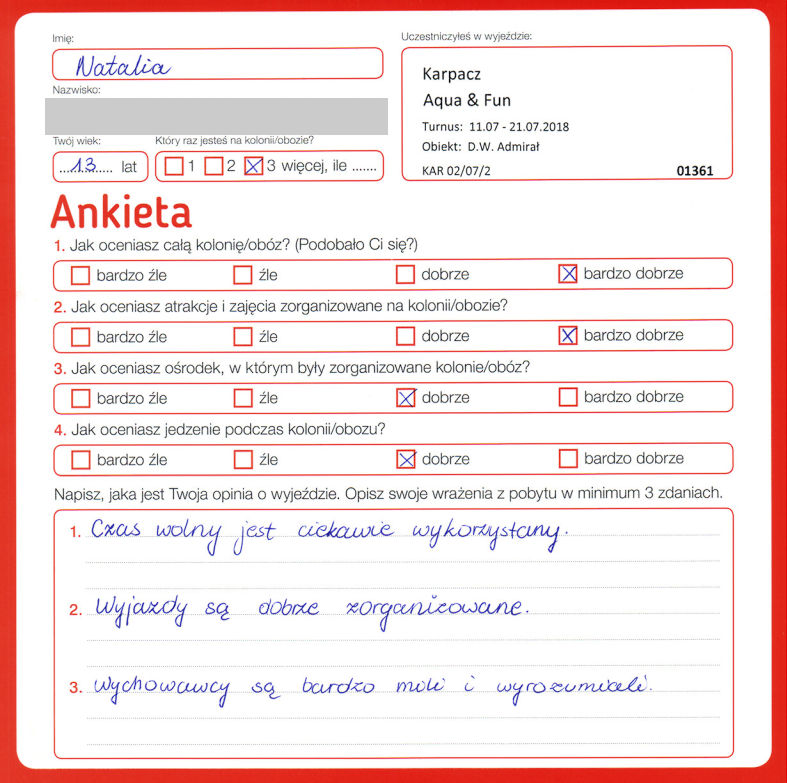 Imię:
Uczestniczyłeś w wyjeździe:
Natalia
Karpacz
Nazwisko:
Aqua & Fun
Turnus: 11.07 - 21.07.2018
Twój wiek:
Który raz jesteś na kolonii/obozie?
Obiekt: D.W. Admirał
...13..... lat
1 2 3 więcej, ile .......
KAR 02/07/2
01361
Ankieta
1. Jak oceniasz całą kolonię/obóz? (Podobało Ci się?)
bardzo źle źle dobrze bardzo dobrze
2. Jak oceniasz atrakcje i zajęcia zorganizowane na kolonii/obozie?
bardzo źle źle dobrze bardzo dobrze
3. Jak oceniasz ośrodek, w którym były zorganizowane kolonie/obóz?
bardzo źle źle dobrze bardzo dobrze
4. Jak oceniasz jedzenie podczas kolonii/obozu?
bardzo źle źle dobrze bardzo dobrze
Napisz, jaka jest Twoja opinia o wyjeździe. Opisz swoje wrażenia z pobytu w minimum 3 zdaniach.
1. Czas wolny jest ciekawie wykorzystany.
2. Wyjazdy są dobrze zorganizowane.
3. Wychowawcy są bardzo mili i wyrozumiali.